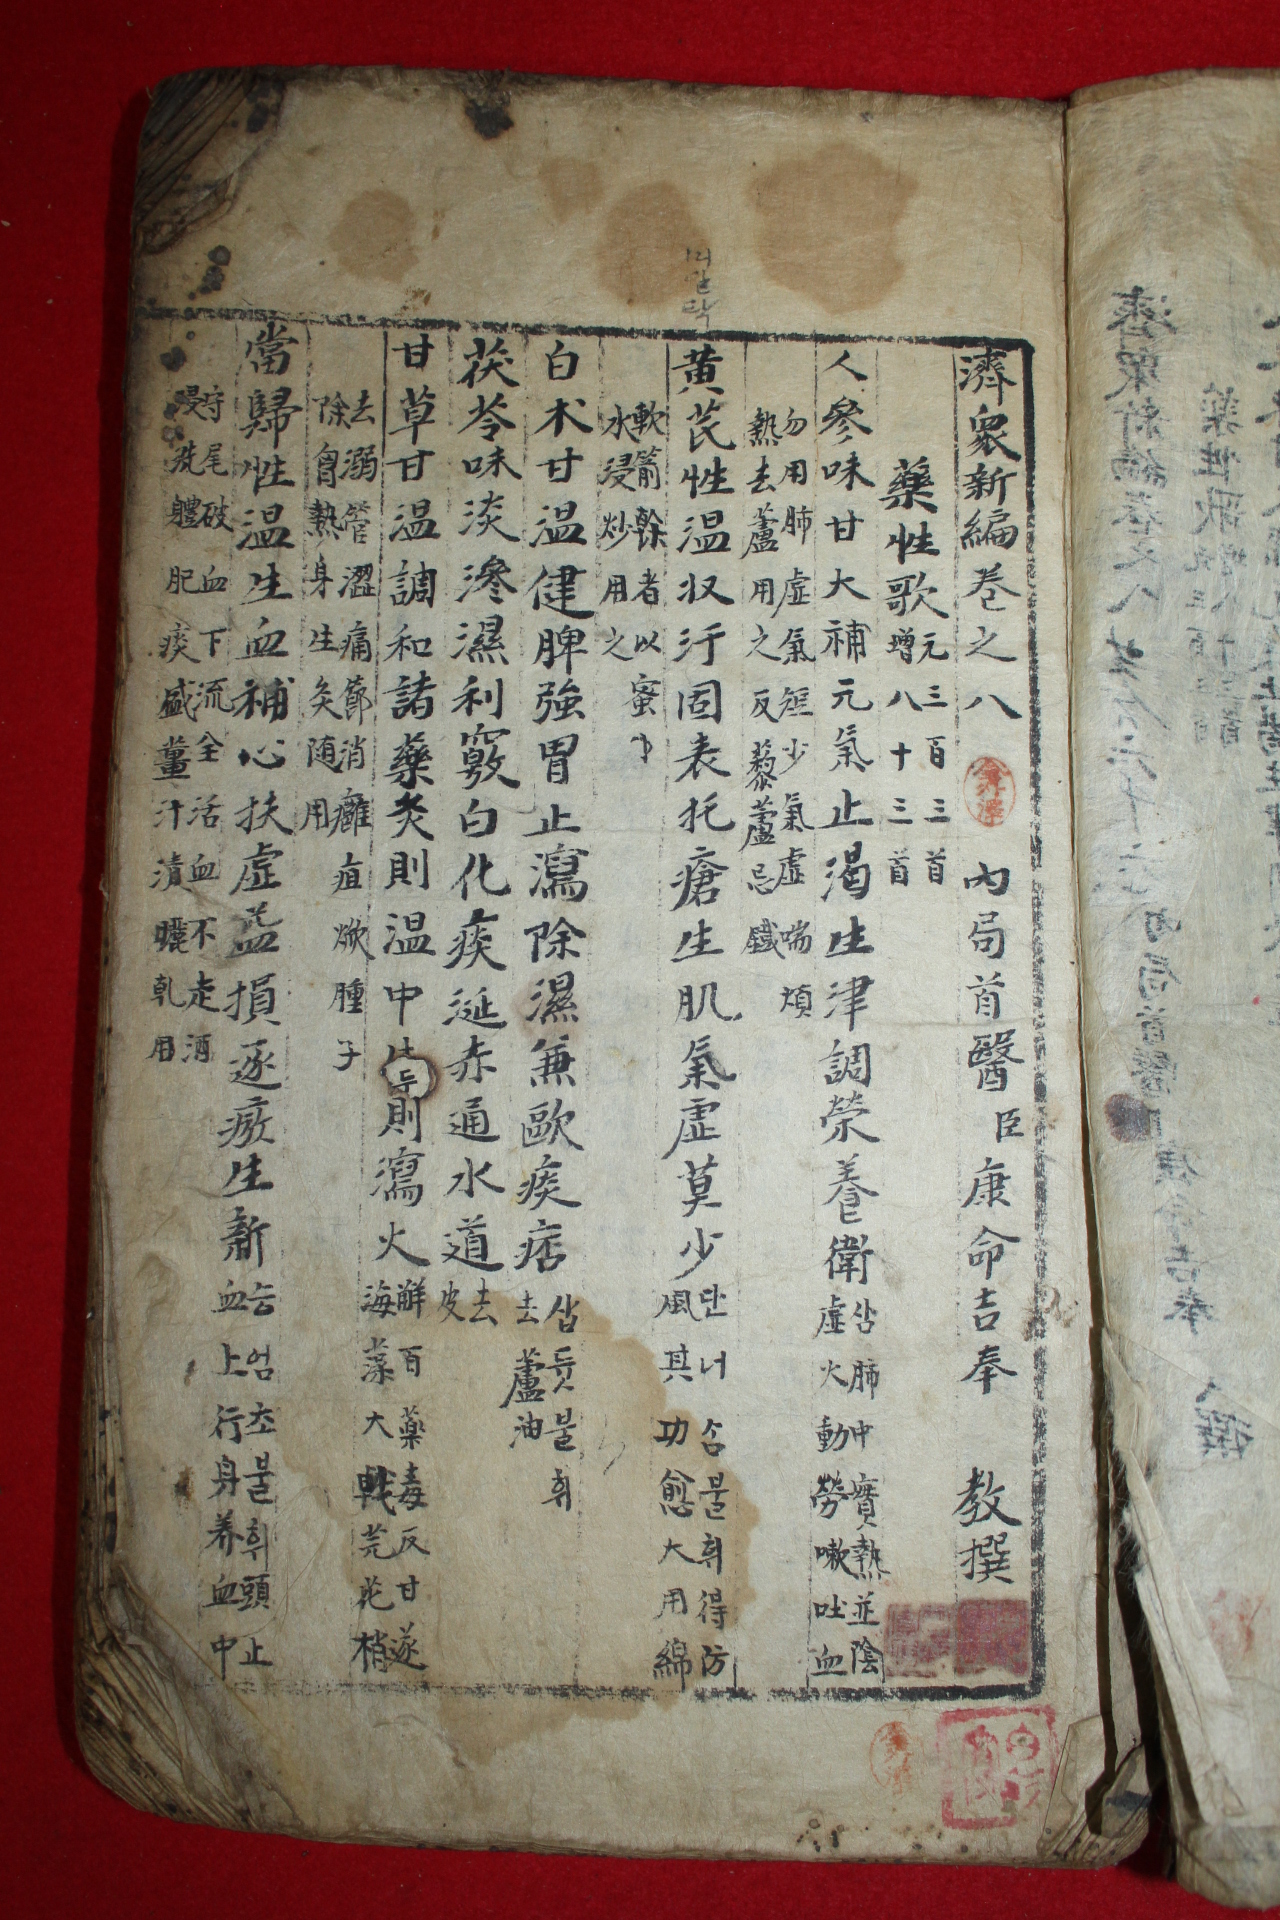 濟衆新編卷之八 內局首醫臣康命吉奉 教撰
藥性歌 元三百三首 增八十三首
人參味甘大補元氣止渴生津調榮養衛 삼肺中實熱並陰虛火動勞嗽吐血
勿用肺虛氣短少氣虛喘煩熱去蘆用之反藜蘆忌鐵
黃芪性溫收汗固表托瘡生肌氣虛莫少 단너삼불휘得防風其功愈大用綿
軟箭幹者以蜜水浸炒用之
白朮甘溫健脾強胃止瀉除濕兼歐痰痞 삽듓불휘去蘆油
茯苓味淡滲濕利竅白化痰涎赤通水道 去皮
甘草甘溫調和諸藥炙則溫中生則瀉火 解百藥毒反甘遂海藻大戟芫花梢
去溺管澁痛節消癰疽焮腫子除胷熱身生炙隨用
當歸性溫生血補心扶虛益損逐瘀生新 승엄초불휘頭止血上行身養血中
守尾破血下流全活血不走酒浸洗體肥痰盛薑汁漬曬乾用